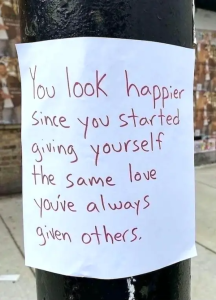 You look happier
since you started
giving yourself
the same love
you've always
given others.